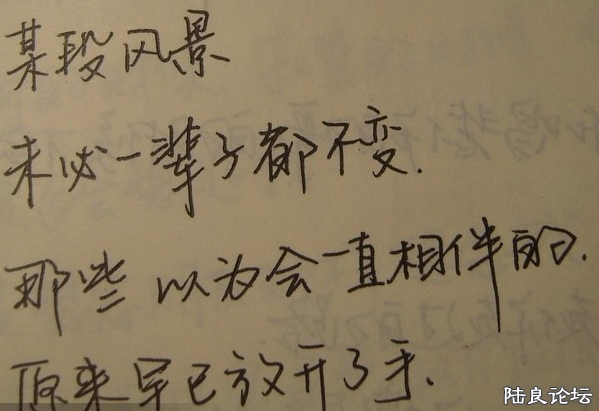 某段风景
未必一辈子都不变.
那些 以为会一直相伴的.
原来早已放开了手.
陆良论坛